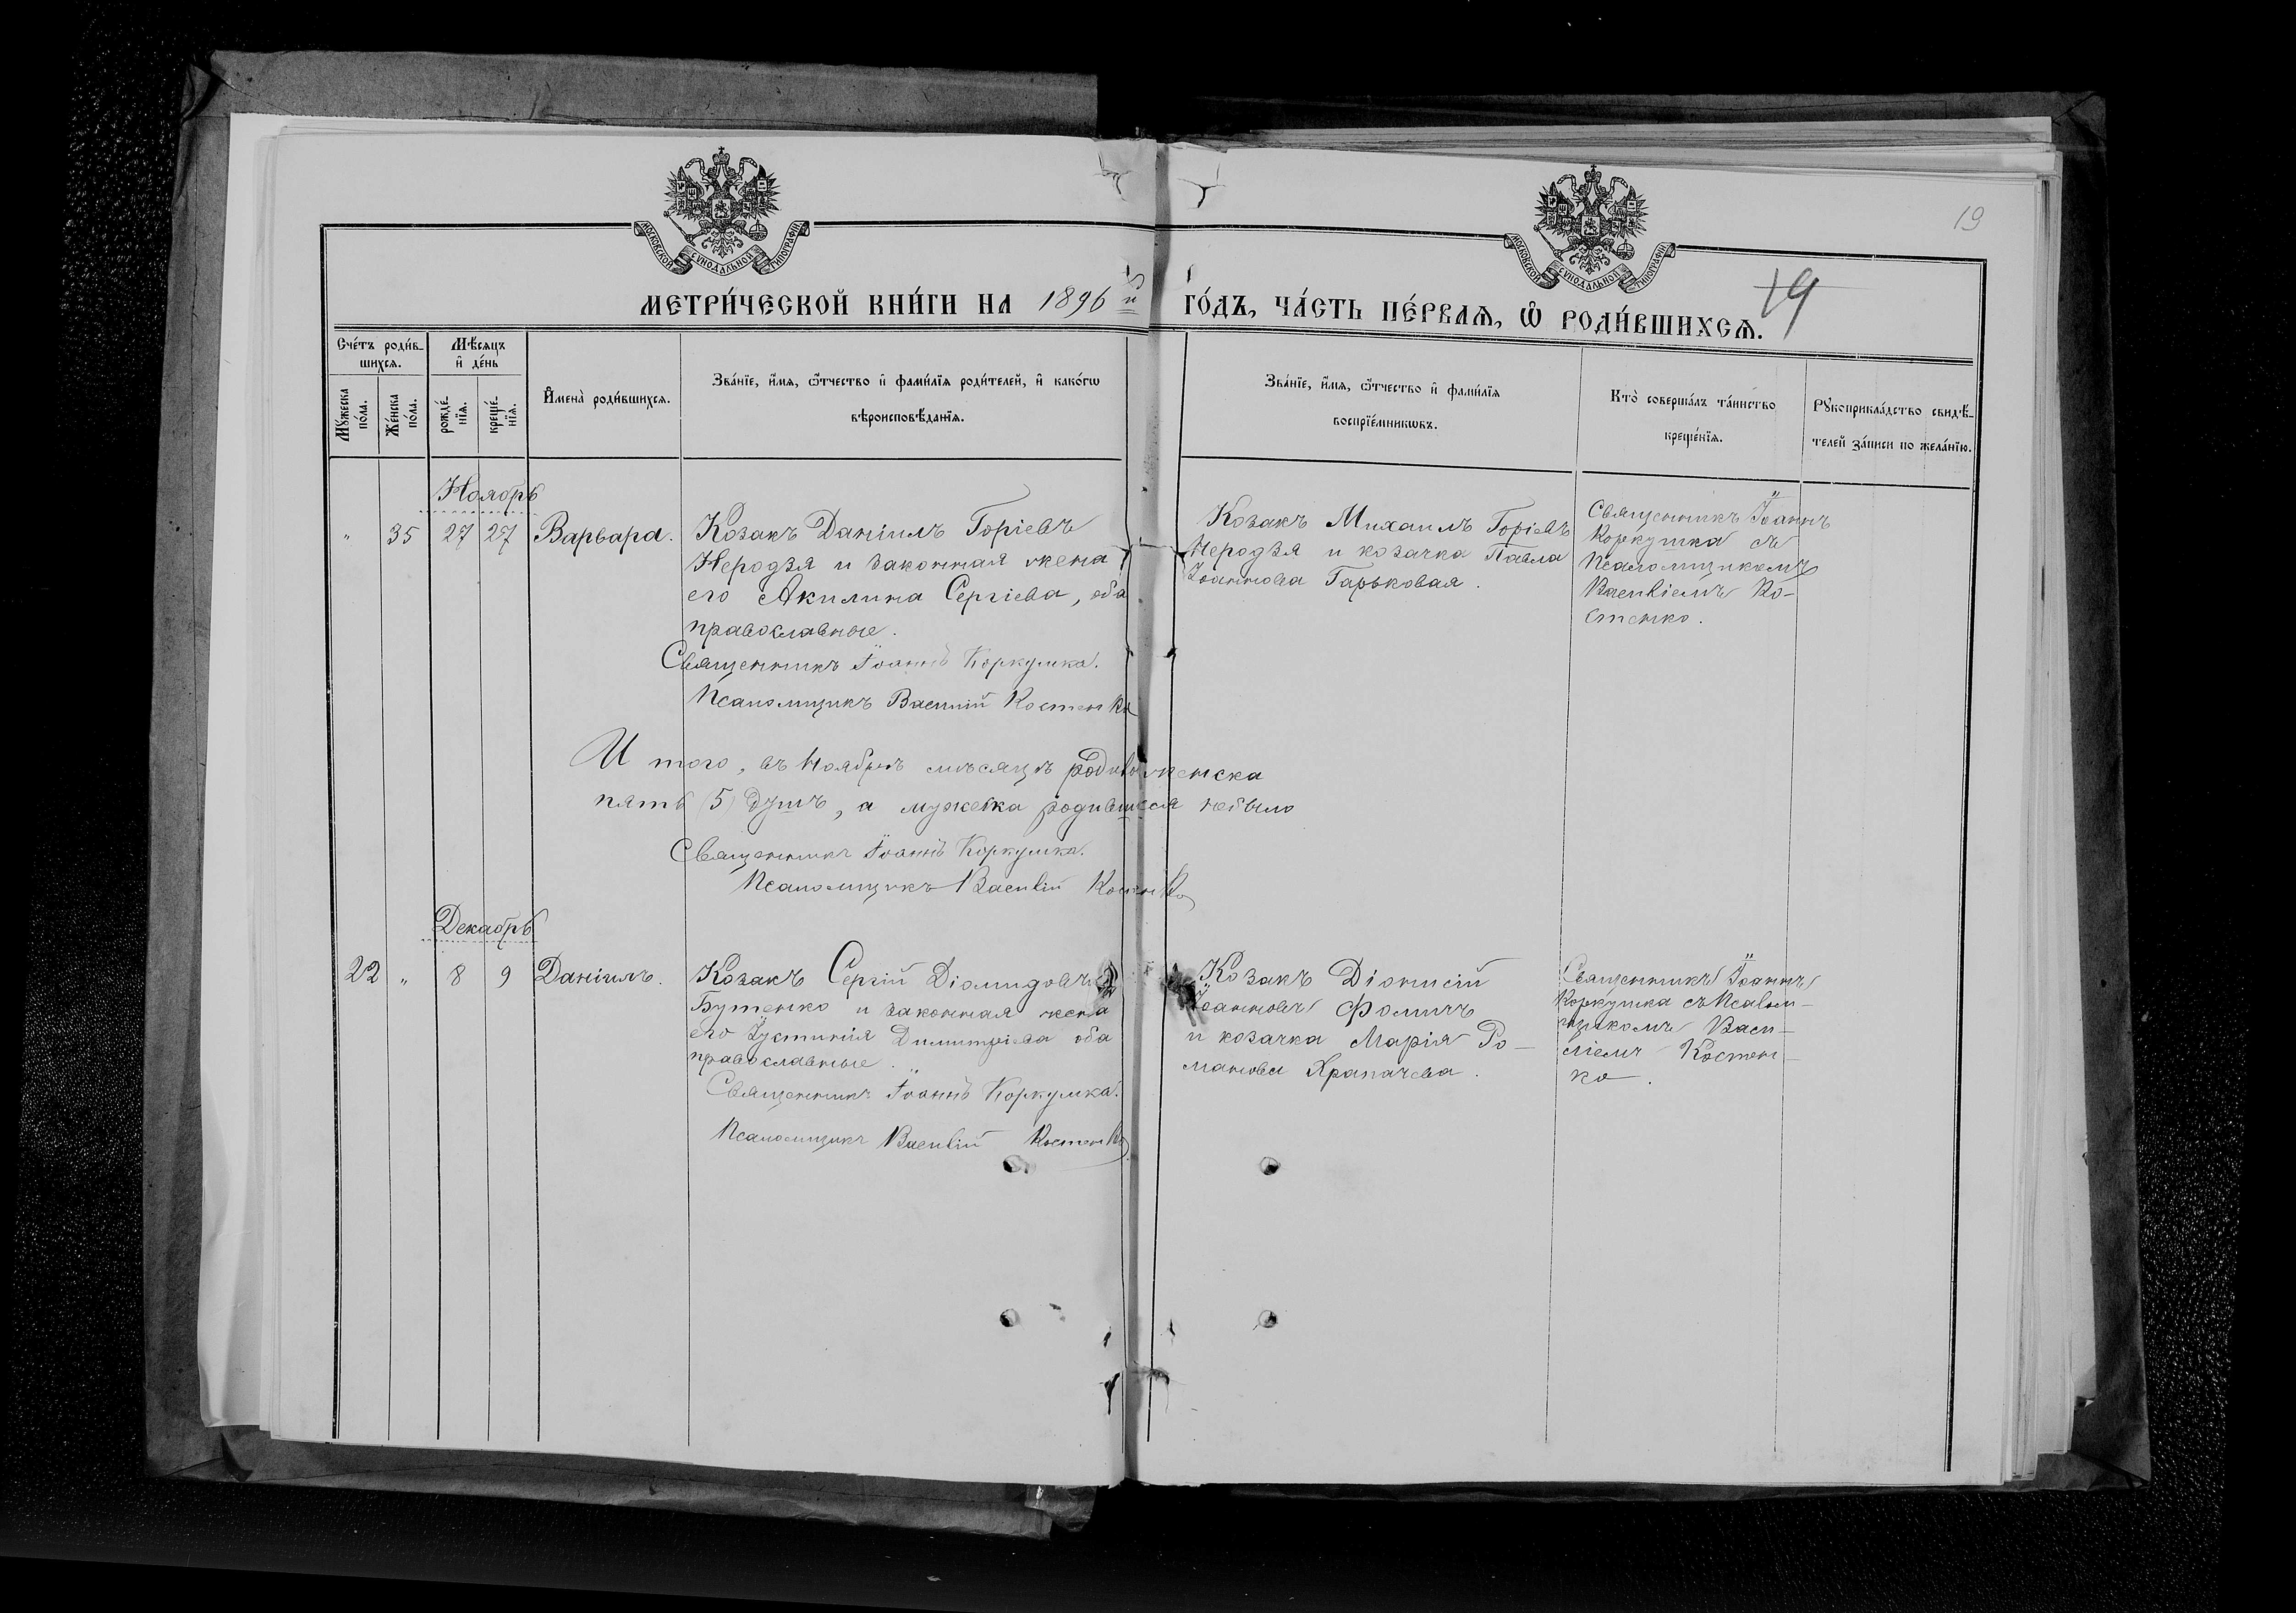 19
МОСКОВСКОЙ СУНОДАЛЬНОЙ ТИПОГРАФІИ
МОСКОВСКОЙ СУНОДАЛЬНОЙ ТИПОГРАФІИ
МЕТРИ́ЧЕСКОЙ КНИ́ГИ НА 1896 й ГО́ДЪ, ЧА́СТЬ ПЕ́РВАѦ, Ѽ РОДИ́ВШИХСѦ.
19
Счétъ роди́в-
шихсѧ.
Мꙋжеска
по́ла.
Же́нска
по́ла.
Мѣ́сѧцъ
и҆ де́нь
рожде́-
нїѧ.
креще́-
нїѧ.
И҆мена̀ роди́вшихсѧ.
Зва́нїе, и҆́мѧ, ѻ҆́тчество и҆ фами́лїѧ роди́телей, и҆ како́гѡ
вѣроисповѣ́данїѧ.
Зва́нїе, и҆́мѧ, ѻ҆́тчество и҆ фами́лїѧ
воспрїе́мникѡвъ.
Кто̀ соверша́лъ та́инство
креще́нїѧ.
Рꙋкоприкла́дство свидѣ́-
телей за́писи по жела́нїю.
Ноябрь
" 35 27 27 Варвара.
Козакъ Даніилъ Горіевъ
Неродзя и законная жена
его Акилина Сергіева, оба
православные.
Священникъ Іоаннъ Коркушка.
Псаломщикъ Василій Костенко
Козакъ Михаилъ Горіевъ
Неродзя и козачка Павла
Іоаннова Гарьковая.
Священникъ Іоаннъ
Коркушка съ
Псаломщикомъ
Василіемъ Ко-
стенко.
И того, въ Ноябрѣ мѣсяцѣ родилось женска
пять (5) душъ, а мужеска родившихся небыло
Священникъ Іоаннъ Коркушка.
Псаломщикъ Василій Костенко
Декабрь
22 " 8 9 Даніилъ.
Козакъ Сергій Діомидовъ
Бутенко и законная жена
его Іустинія Димитріева оба
православные.
Священникъ Іоаннъ Коркушка.
Псаломщикъ Василій Костенко
Козакъ Діонисій
Іоанновъ Фомичъ
и козачка Марія Ро-
манова Храпачева.
Священникъ Іоаннъ
Коркушка съ Псалом-
щикомъ Васи-
ліемъ Костен-
ко.